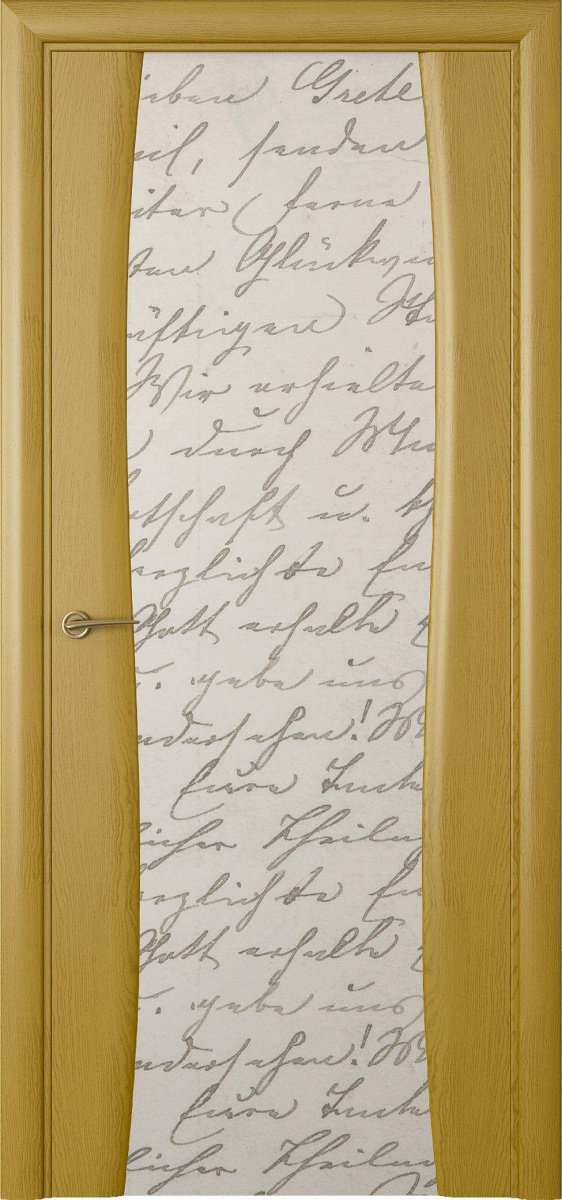 ieben Grete
eil, senden
iter ferne
ten Glückwün
äftigen
Wir erhielte
durch
otschaft u.
erzlichste
Gott erhalte
gebe uns
iedersehen!
Eure Tante
licher Theiln
erzlichste
Gott erhalte
gebe uns
iedersehen!
Eure Tante
licher Theiln